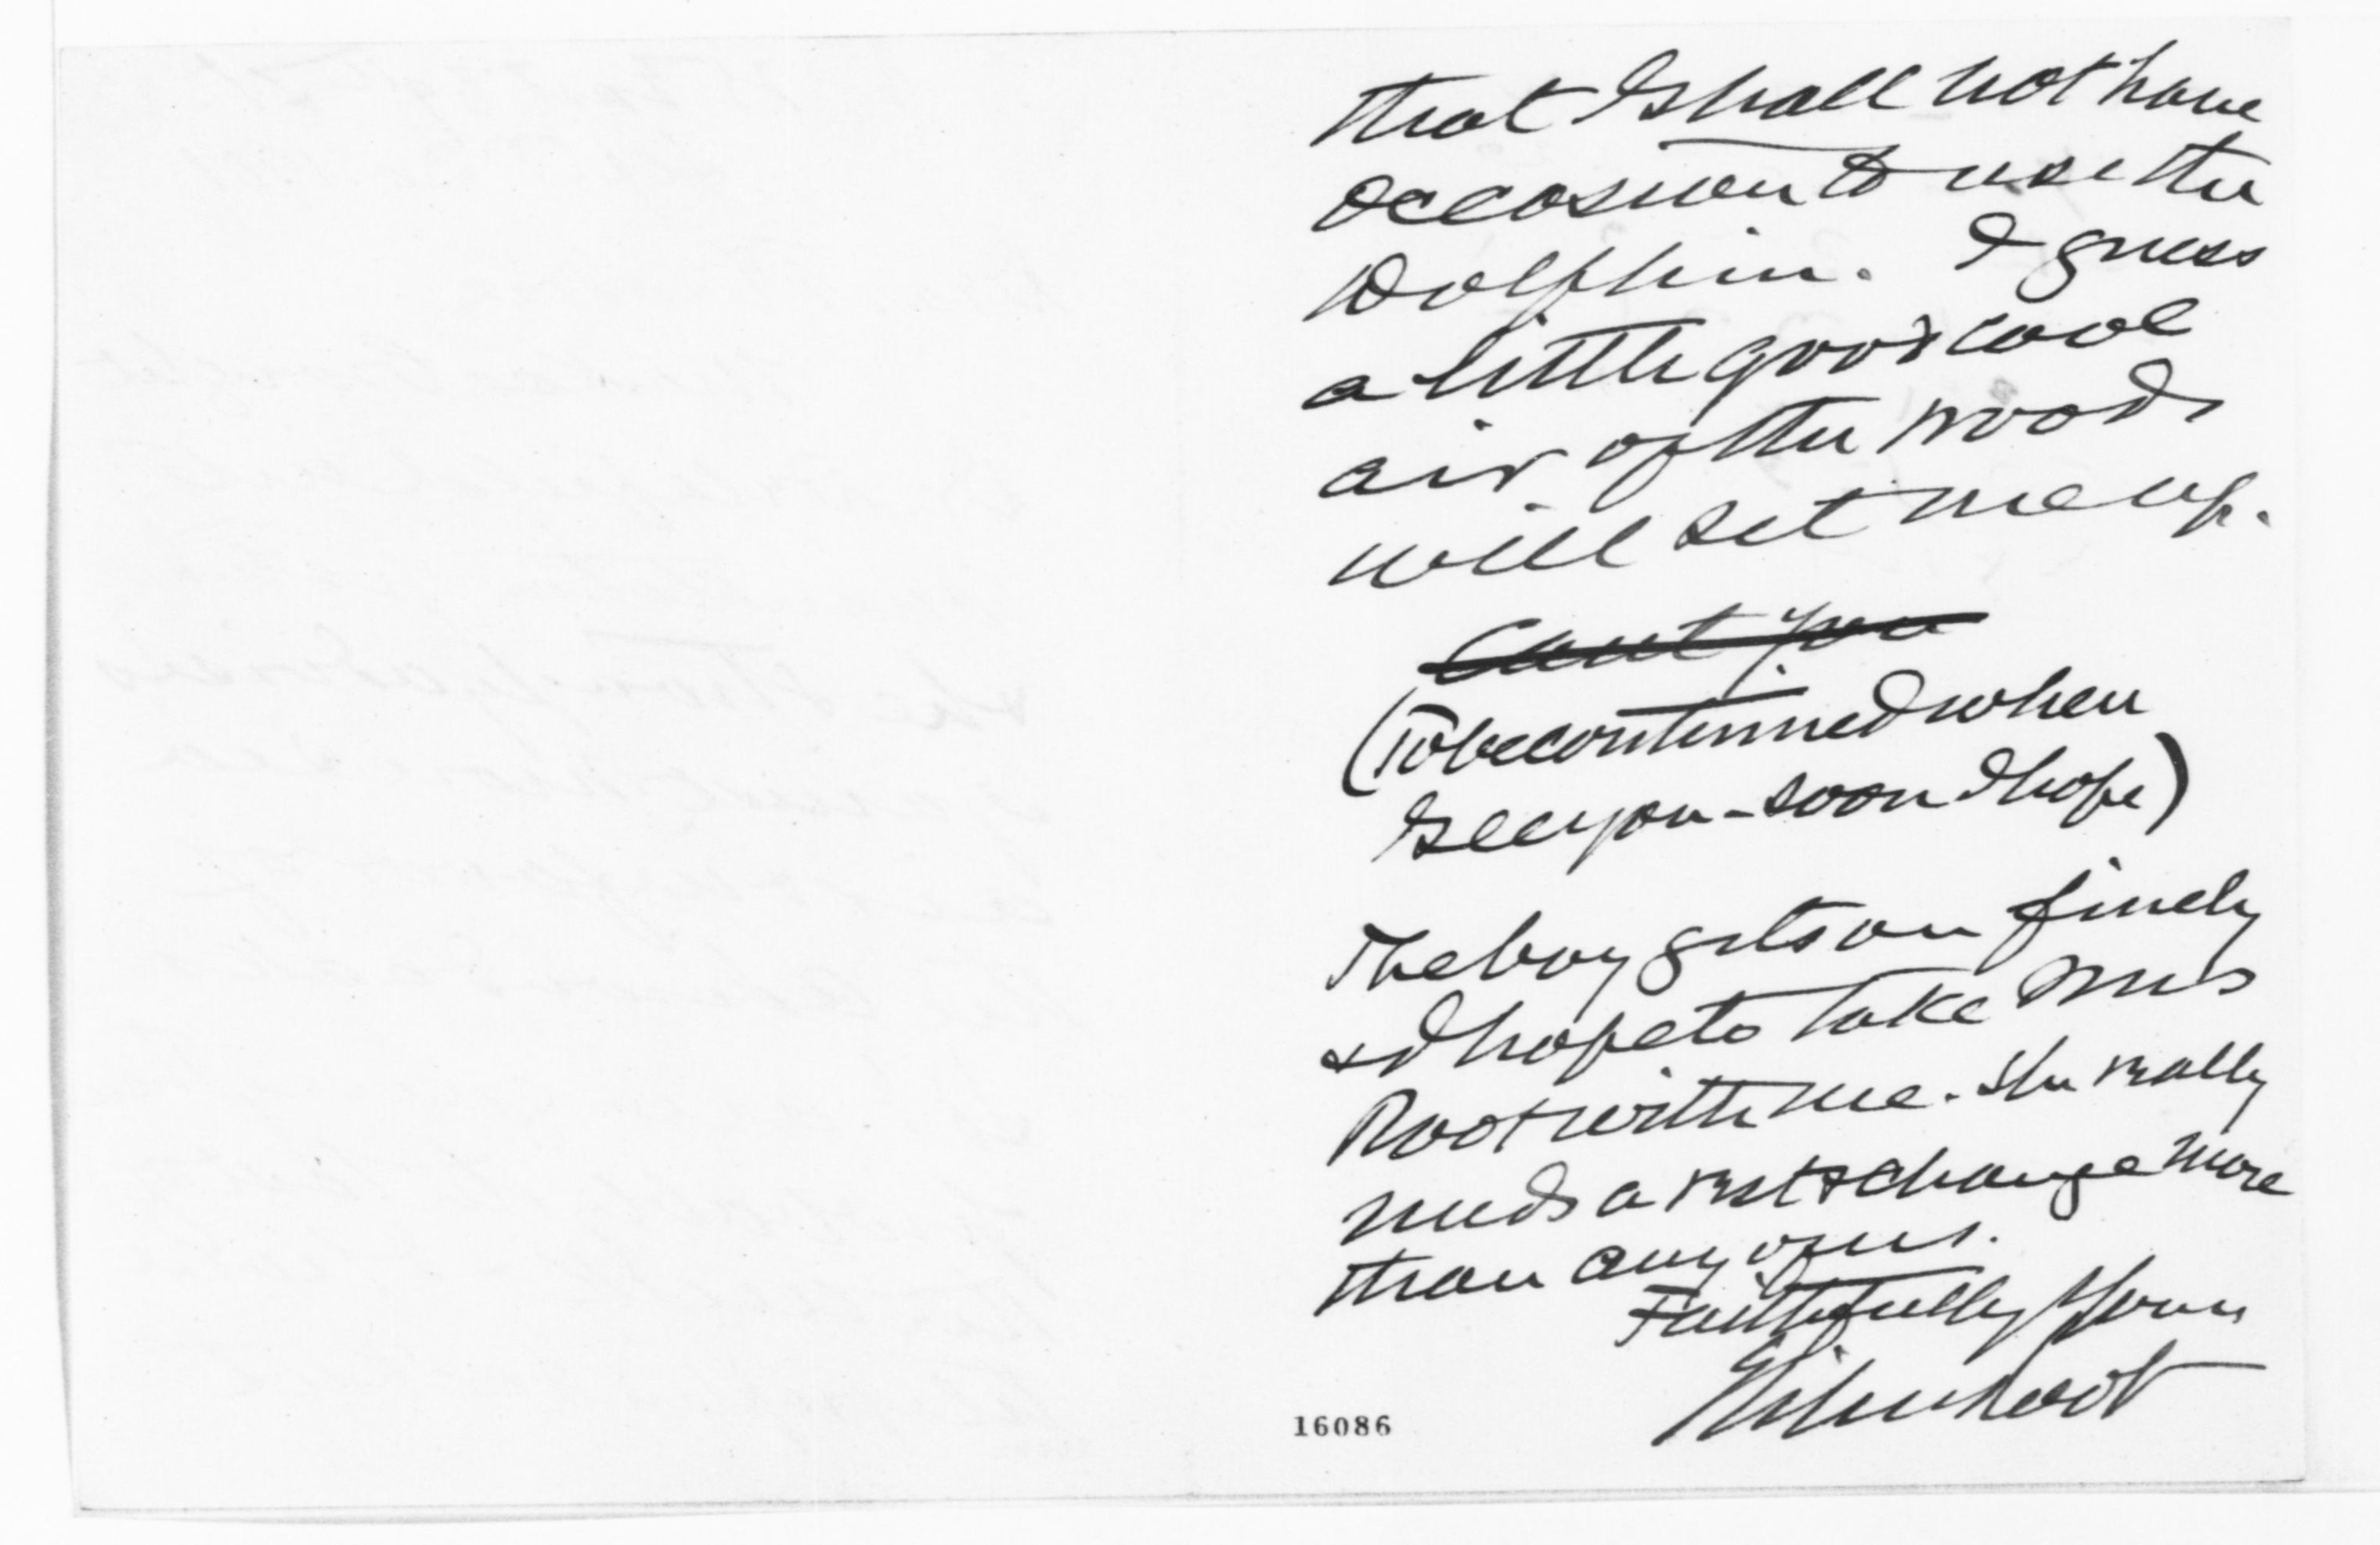 that I shall not have
occasion to use the
Dolphin. I guess
a little good cool
air of the woods
will set me up.
Cant you
(To be continued when
I see you - soon I hope)
The boy gets on finely
& I hope to take Mrs
Root with me. She really
needs a rest & change more
than any of us.
Faithfully Yours
Elihu Root
16086